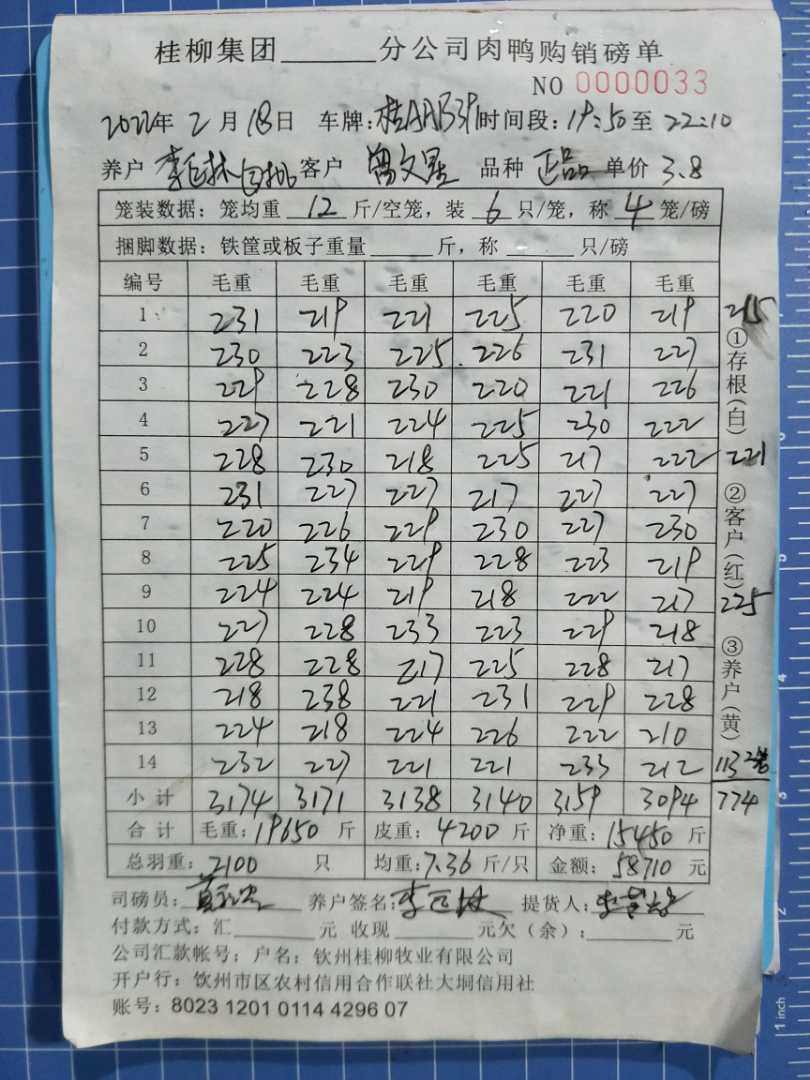 桂柳集团______分公司肉鸭购销磅单
NO 0000033
2022年 2 月 18日 车牌:桂AAB39 时间段:19:50至 22:10
养户 客户 曾文星 品种 正品 单价 3.8
笼装数据:笼均重 12 斤/空笼,装 6 只/笼,称 4 笼/磅
捆脚数据:铁筐或板子重量_____斤,称_____只/磅
编号 毛重 毛重 毛重 毛重 毛重 毛重
1 231 219 221 225 220 219 215
2 230 223 225 226 231 227
3 229 228 230 220 221 226
4 227 221 224 225 230 222
5 228 230 218 225 217 222 221
6 231 227 227 217 227 227
7 220 226 229 230 227 230
8 225 234 229 228 223 219
9 224 224 219 218 222 217 225
10 227 228 233 223 229 218
11 228 228 217 225 228 217
12 218 238 221 231 229 228
13 224 218 224 226 222 210
14 232 227 221 221 233 212 113 2笼
小计 3174 3171 3138 3140 3159 3094 774
合计 毛重:19650 斤 皮重:4200 斤 净重:15450 斤
总羽重:2100 只 均重:7.36 斤/只 金额:58710 元
司磅员: 养户签名: 提货人:
付款方式:汇______元 收现______元欠(余):______元
公司汇款帐号:户名:钦州桂柳牧业有限公司
开户行:钦州市区农村信用合作联社大垌信用社
账号:8023 1201 0114 4296 07
①存根(白)
②客户(红)
③养户(黄)
1 inch